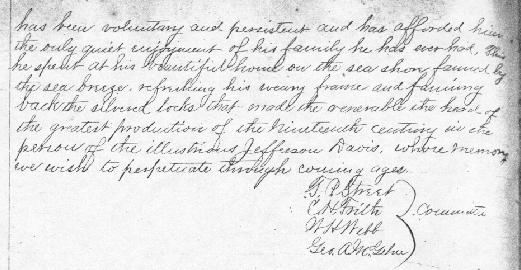 has been voluntary and persistent and has afforded him
the only quiet enjoyment of his family he has ever had. This
he spent at his beautiful home on the sea shore fanned by
the sea breeze, refreshing his weary frame and fanning
back the silvered locks that made the venerable the head of
the greatest production of the Nineteenth century in the
person of the illustrious Jefferson Davis, whose memory
we wish to perpetuate through coming ages.
G. P. Street
C. H. Frith
W. H. Webb
Geo. A. McGehee
Committee